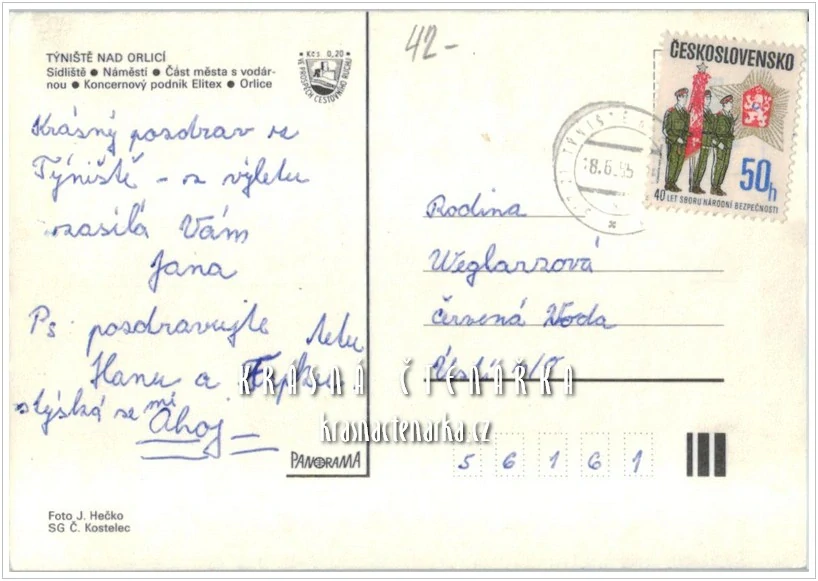 TÝNIŠTĚ NAD ORLICÍ
Sídliště ● Náměstí ● Část města s vodár-
nou ● Koncernový podnik Elitex ● Orlice
Kčs 0,20
VE PROSPĚCH CESTOVNÍHO RUCHU
42-
ČESKOSLOVENSKO
50h
40 LET SBORU NÁRODNÍ BEZPEČNOSTI
TÝNIŠTĚ
18.6.85
Krásný pozdrav ze
Týniště – z výletu
zasílá Vám
Jana
Ps pozdravujte tetu
Hanu a
stýská se mi
Ahoj
Rodina
Weglarzová
Červená Voda
Ústí n/O
56161
KRÁSNÁ ČTENÁŘKA
krasnactenarka.cz
PANORAMA
Foto J. Hečko
SG Č. Kostelec